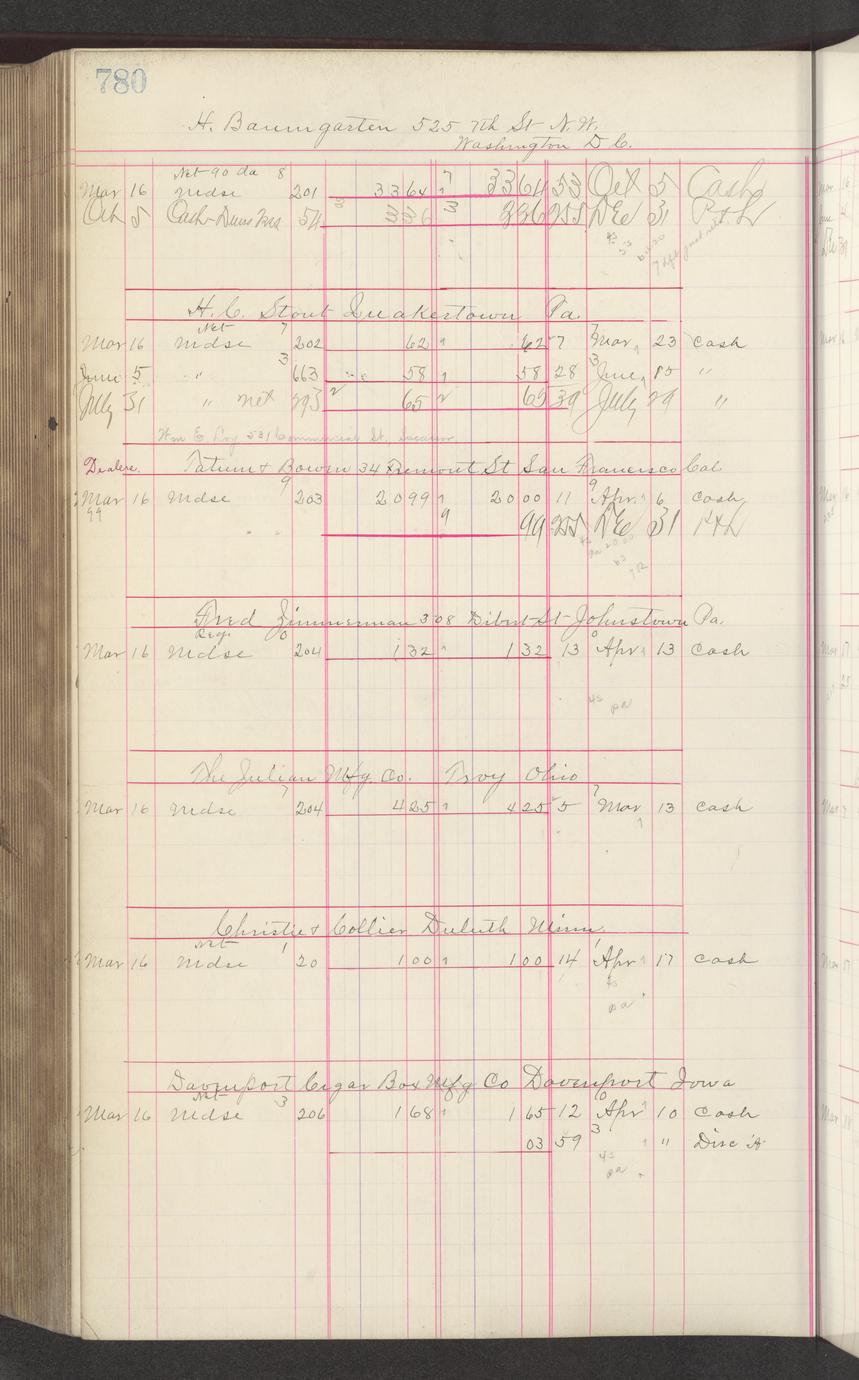 780
H. Baumgarten 525 7th St N.W.
Washington D C.
Net 90 da 8 7
Mar 16 mdse 201 3364 3364 53 Oct 5 Cash
Oct 5 Cash 54 3 336 3 336 255 DE 31 P&L
H. C. Stout Quakertown Pa.
Net 7 7
Mar 16 mdse 202 62 62 7 Mar 23 cash
3 3
June 5 " 663 58 58 28 June 15 "
July 31 " net 293 2 65 2 65 39 July 29 "
Wm E. 531 Commercial St.
Dealers. Tatum & Bowen 34 Fremont St San Francisco Cal
9 9
Mar 16 mdse 203 2099 2000 11 Apr. 6 cash
99 9 99 255 DE 31 P&L
Fred Zimmerman 308 Dibert St Johnstown Pa.
Reg. 0 0
Mar 16 mdse 204 132 132 13 Apr 13 cash
45
pa
The Julian Mfg. Co. Troy Ohio
7 7
Mar 16 mdse 204 425 425 5 Mar 13 cash
Christie & Collier Duluth Minn.
Net 1 1
Mar 16 mdse 20 100 100 14 Apr 17 cash
pa
Davenport Cigar Box Mfg Co Davenport Iowa
Net 3 6
Mar 16 mdse 206 168 165 12 Apr 10 cash
3
03 59 " Disc
45
pa